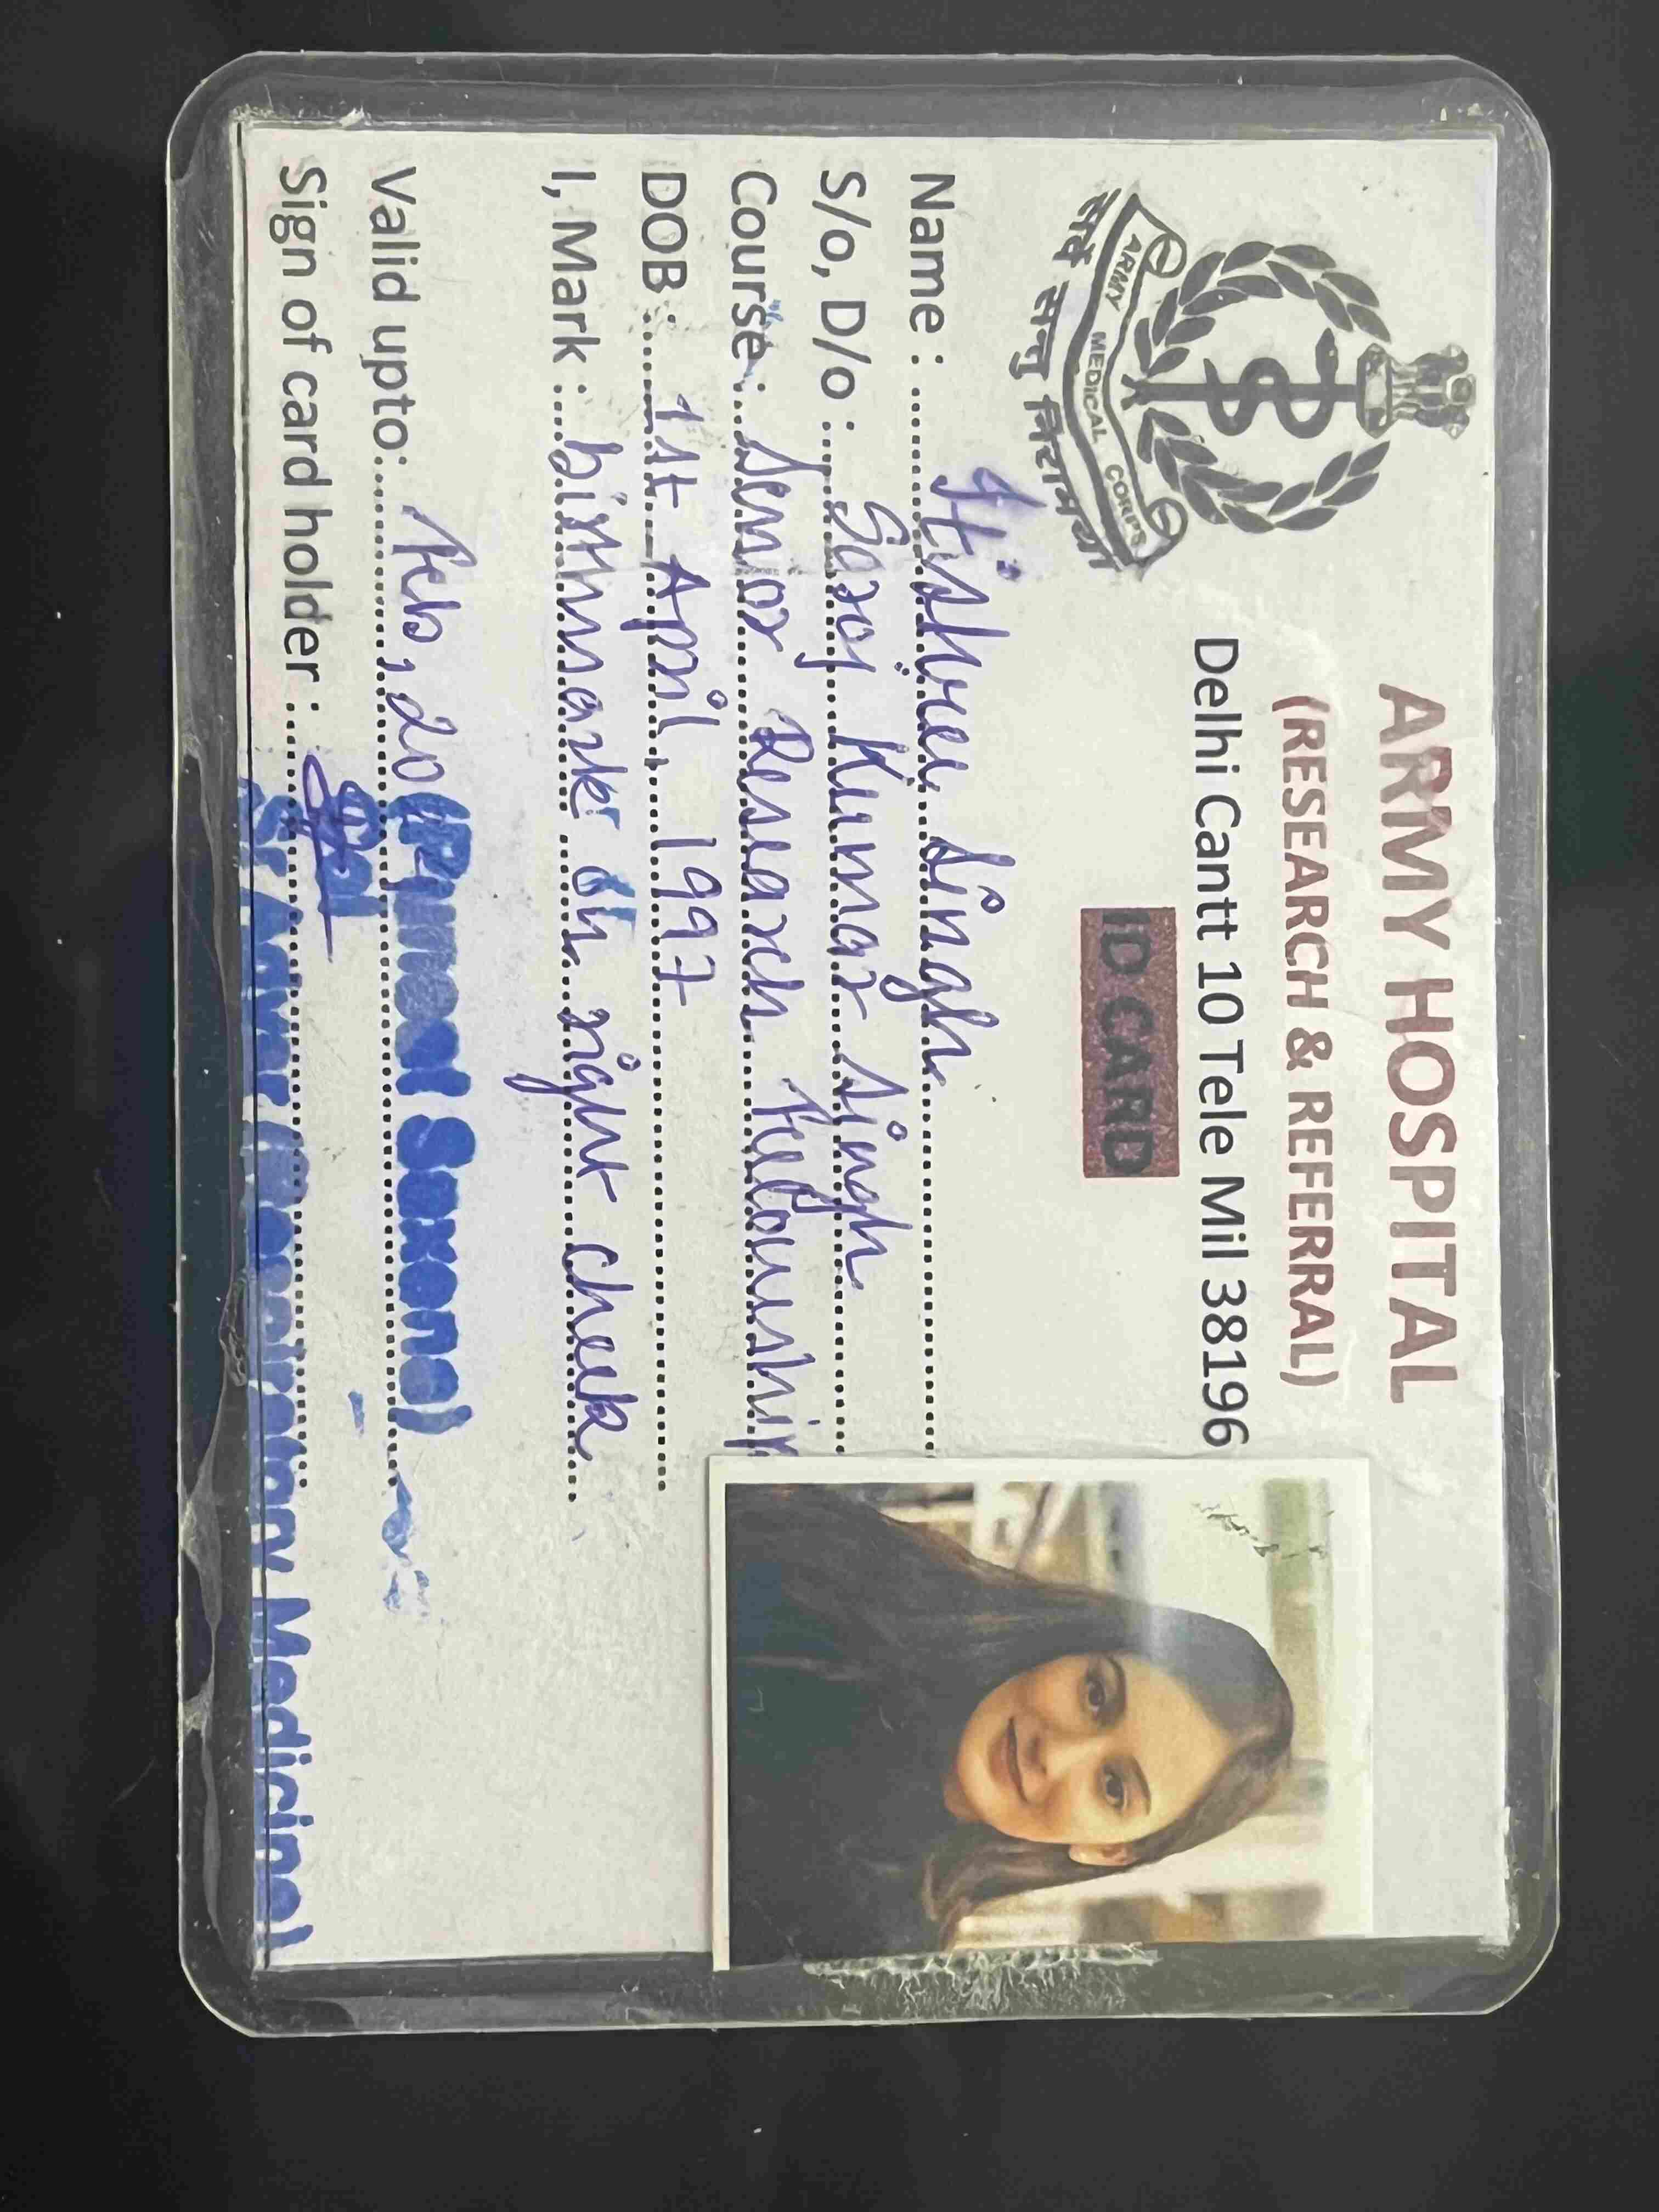 ARMY HOSPITAL
(RESEARCH & REFERRAL)
Delhi Cantt 10 Tele Mil 38196
ARMY MEDICAL CORPS
सर्वे सन्तु निरामया
ID CARD
Name : Singh
S/o, D/o : Saroj Kumar Singh
Course : Senior Research Fellowship
DOB : 1st April, 1997
I, Mark : birthmark on right cheek
Valid upto: Feb, 20
(Puneet Saxena)
Sign of card holder :
Sr Advr (Respiratory Medicine)